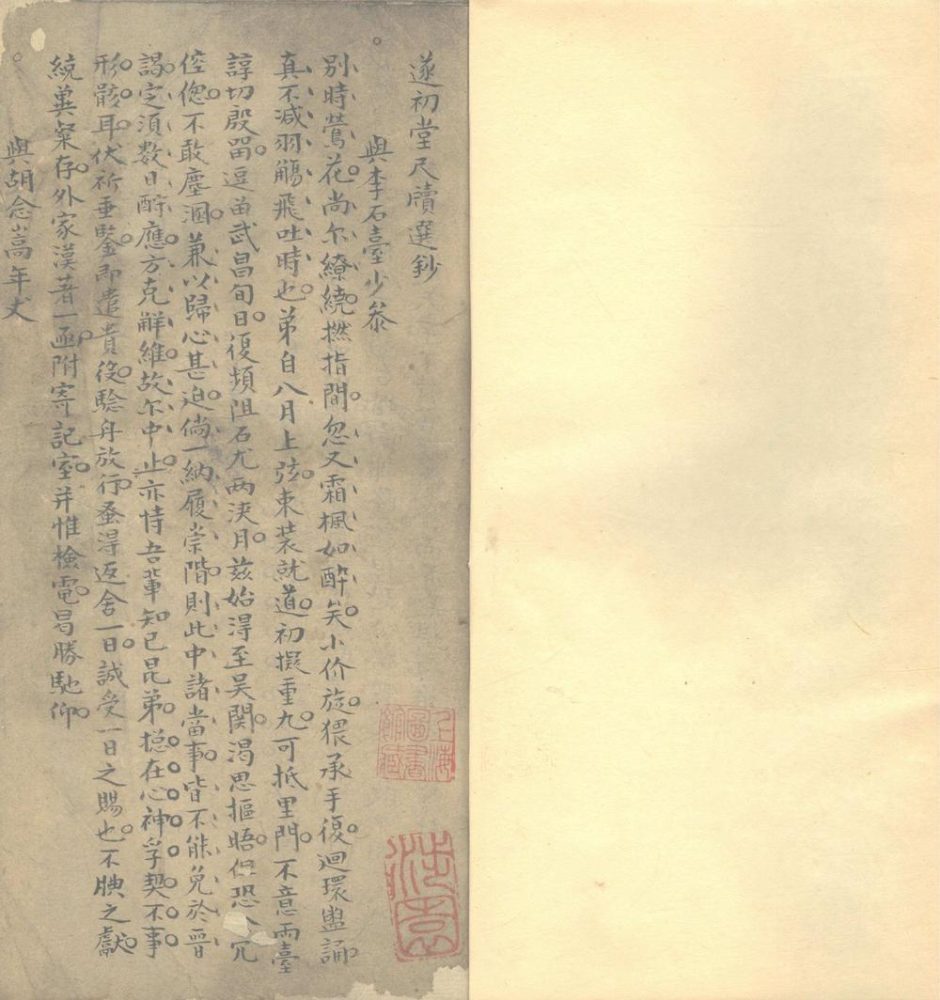 遂初堂尺牘選鈔
與李石臺少叅
別時鶯花尚尔繚繞撚指間忽又霜楓如醉矣小价旋猥承手復迴環盥誦
真不減羽觴飛吐時也弟自八月上弦束裝就道初擬重九可抵里門不意兩臺
諄切殷留逗畄武昌旬日復頻阻石尤兩浹月兹始淂至吴関渴思摳晤但恐冗
倥偬不敢塵溷兼以歸心甚迫倘一納履崇階則此中諸當事皆不能免於晋
謁定須数日酧應方克觧維故尔中止亦恃吾輩知已昆弟揔在心神孚契不事
形骸耳伏祈垂鍳即遣貴役騐舟放行蚤淂返舍一日誠受一日之賜也不腆之獻
統兾粲存外家漢著一函附寄記室并惟檢電曷勝馳仰
與胡念蒿年丈
上海圖書館藏